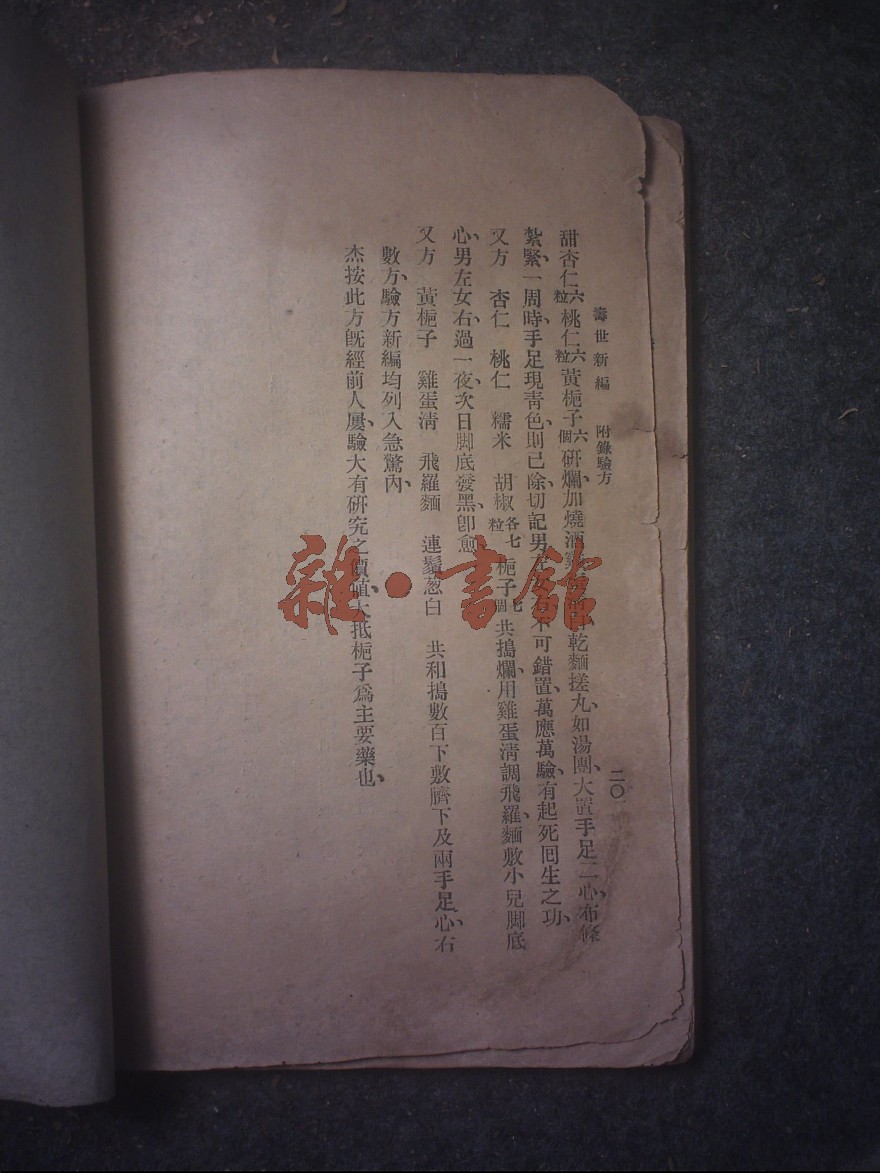 壽世新編　附錄驗方　二〇
甜杏仁六粒桃仁六粒黃梔子六個研爛、加燒酒雞乾麵搓丸、如湯團、大置手足二心、布條
紮緊、一周時、手足現青色、則已除、切記男左不可錯置、萬應萬驗、有起死囘生之功、
又方　杏仁　桃仁　糯米　胡椒各七粒　梔子七個共搗爛、用雞蛋清調飛羅麵敷小兒脚底
心、男左女右、過一夜、次日脚底發黑、卽愈
又方　黃梔子　雞蛋清　飛羅麵　連鬚葱白　共和搗數百下敷臍下及兩手足心、右
數方、驗方新編均列入急驚內、
杰按此方旣經前人屢驗、大有硏究之價値、大抵梔子爲主要藥也、
雜·書館